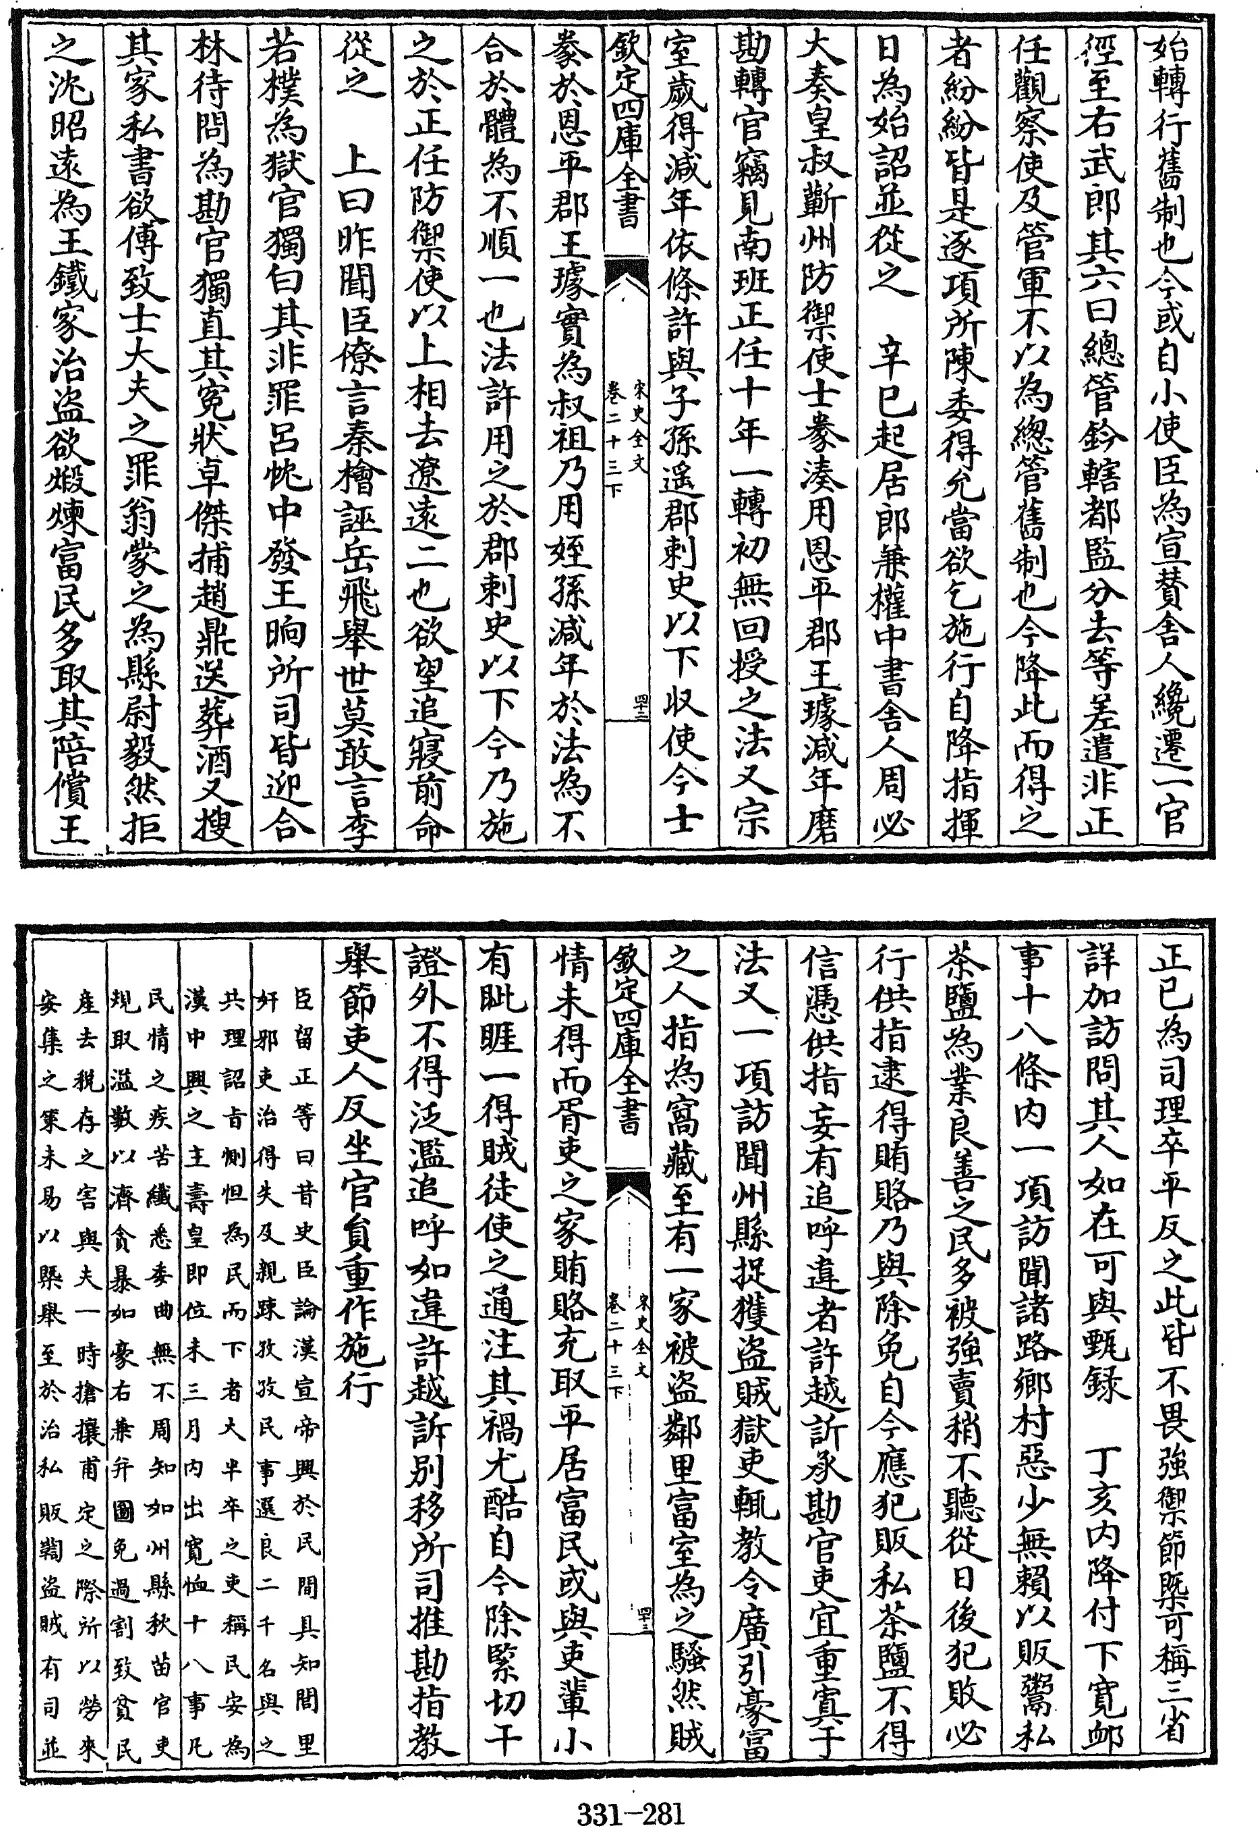 始轉行舊制也今或自小使臣為宣賛舎人纔遷一官
徑至右武郎其六曰總管鈐轄都監分去等差遣非正
任觀察使及管軍不以為總管舊制也今降此而得之
者紛紛皆是逐項所陳委得允當欲乞施行自降指揮
日為始詔並從之　辛巳起居郎兼權中書舎人周必
大奏皇叔蘄州防禦使士豢湊用恩平郡王璩減年磨
勘轉官竊見南班正任十年一轉初無回授之法又宗
室歲得減年依條許與子孫遥郡刺史以下收使今士
欽定四庫全書　宋史全文卷二十三下　四十二
豢於恩平郡王璩實為叔祖乃用姪孫減年於法為不
合於體為不順一也法許用之於郡刺史以下今乃施
之於正任防禦使以上相去遼遠二也欲望追寢前命
從之　上曰昨聞臣僚言秦檜誣岳飛舉世莫敢言李
若樸為獄官獨白其非罪呂忱中發王晌所司皆迎合
林待問為勘官獨直其寃狀卓傑捕趙鼎送葬酒又搜
其家私書欲傅致士大夫之罪翁蒙之為縣尉毅然拒
之沈昭遠為王鐵家治盜欲煆煉富民多取其陪償王
正已為司理卒平反之此皆不畏強禦節槩可稱三省
詳加訪問其人如在可與甄録　丁亥内降付下寛䘏
事十八條内一項訪聞諸路鄉村惡少無賴以販鬻私
茶鹽為業良善之民多被強賣稍不聽從日後犯敗必
行供指逮得賄賂乃與除免自今應犯販私茶鹽不得
信憑供指妄有追呼違者許越訴承勘官吏宜重寘于
法又一項訪聞州縣捉獲盜賊獄吏輒教令廣引豪富
之人指為窩藏至有一家被盜鄰里富室為之騷然賊
欽定四庫全書　宋史全文卷二十三下　四十三
情未得而胥吏之家賄賂充取平居富民或與吏輩小
有眦睚一得賊徒使之通注其禍尤酷自今除緊切干
證外不得泛濫追呼如違許越訴别移所司推勘指教
舉節吏人反坐官負重作施行
臣留正等曰昔史臣論漢宣帝興於民間具知閭里
奸邪吏治得失及親踈孜孜民事選良二千名與之
共理詔㫖惻怛為民而下者大半卒之吏稱民安為
漢中興之主壽皇即位未三月内出寛恤十八事凡
民情之疾苦纖悉委曲無不周知如州縣秋苗官吏
規取溢數以濟貪暴如豪右兼并圖免過割致貧民
産去稅存之害與夫一時搶攘甫定之際所以勞來
安集之策未易以槩舉至於治私販鞫盜賊有司並
331-281